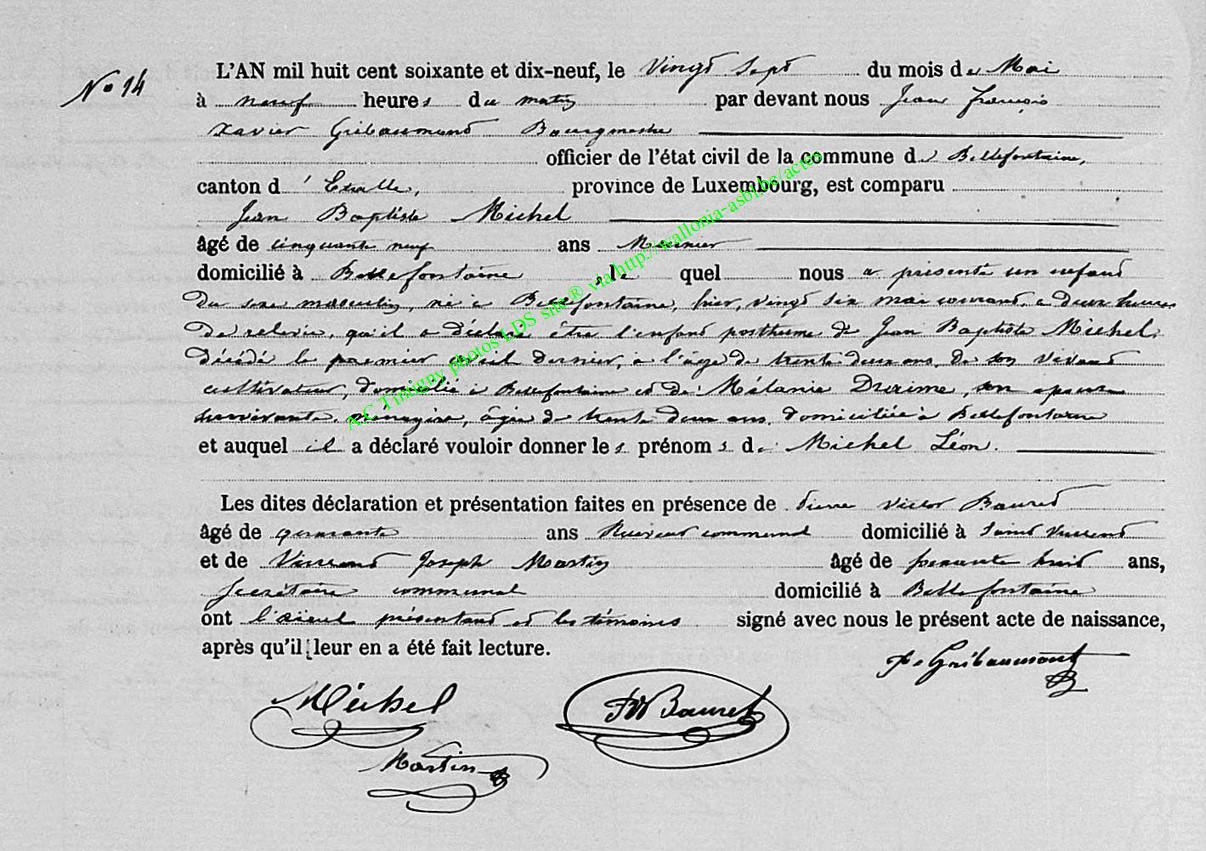 No 14
L'AN mil huit cent soixante et dix-neuf, le Vingt Sept du mois de Mai
à neuf heures du matin par devant nous Jean françois
Xavier Gribaumont Bourgmestre
officier de l'état civil de la commune de Bellefontaine,
canton d'Etalle, province de Luxembourg, est comparu
Jean Baptiste Michel
âgé de cinquante neuf ans Meunier
domicilié à Bellefontaine, le quel nous a présenté un enfant
du sexe masculin, né à Bellefontaine, hier, vingt six mai courant, a deux heures
de relevée, qu'il a déclaré être l'enfant posthume de Jean Baptiste Michel,
décédé le premier avril dernier, a l'âge de trente deux ans, de son vivant
cultivateur, domicilié à Bellefontaine et de Mélanie, son épouse
survivante, ménagère, âgée de trente deux ans, domiciliée à Bellefontaine
et auquel il a déclaré vouloir donner les prénoms de Michel Léon.
Les dites déclaration et présentation faites en présence de Pierre Victor Bauret
âgé de quarante ans Receveur communal domicilié à Saint Vincent
et de Vincent Joseph Martin âgé de huit ans,
Secrétaire communal domicilié à Bellefontaine
ont l'aïeul présentant et les témoins signé avec nous le présent acte de naissance,
après qu'il leur en a été fait lecture.
Gribaumont
Michel
Bauret
Martin
A.C Tintigny photos LDS site ® via http://wallonia-asbl.be/actes